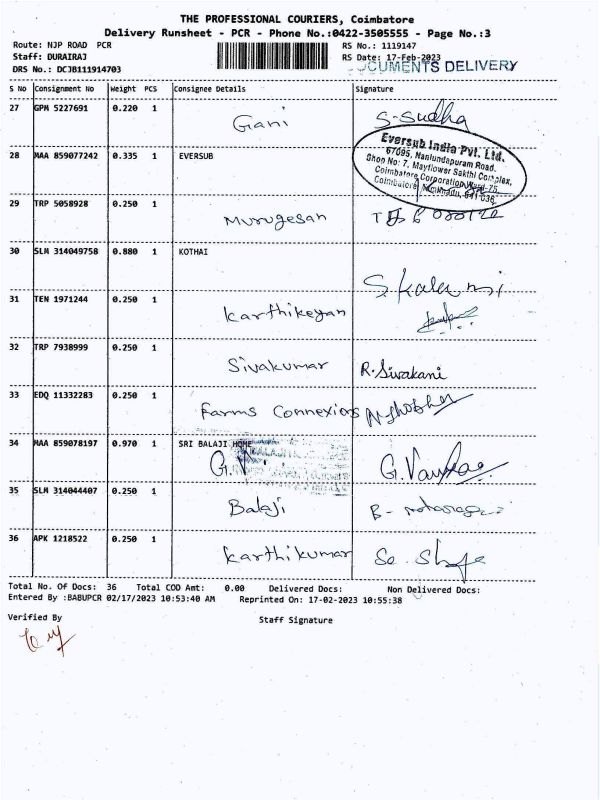 THE PROFESSIONAL COURIERS, Coimbatore
Delivery Runsheet - PCR - Phone No.:0422-3505555 - Page No.:3
Route: NJP ROAD PCR RS No.: 1119147
Staff: DURAIRAJ RS Date: 17-Feb-2023
DRS No.: DCJB111914703 CUMENTS DELIVERY
S No Consignment No Weight PCS Consignee Details Signature
27 GPM 5227691 0.220 1 Gani S-Sudha
Eversub India Pvt. Ltd.
67095, Nanjundapuram Road.
Shop No: 7, Mayflower Sakthi Complex,
Coimbatore Corporation Ward-75,
Coimbatore, Tamilnadu, 641 036.
28 MAA 859077242 0.335 1 EVERSUB
29 TRP 5058928 0.250 1 Murugesan
30 SLM 314049758 0.880 1 KOTHAI
31 TEN 1971244 0.250 1 Karthikeyan
32 TRP 7938999 0.250 1 Sivakumar R.Sivakani
33 EDQ 11332283 0.250 1 Farms Connexions
34 MAA 859078197 0.970 1 SRI BALAJI HOME
G.V.
35 SLM 314044407 0.250 1 Balaji
36 APK 1218522 0.250 1 Karthikumar
Total No. Of Docs: 36 Total COD Amt: 0.00 Delivered Docs: Non Delivered Docs:
Entered By :BABUPCR 02/17/2023 10:53:40 AM Reprinted On: 17-02-2023 10:55:38
Verified By Staff Signature